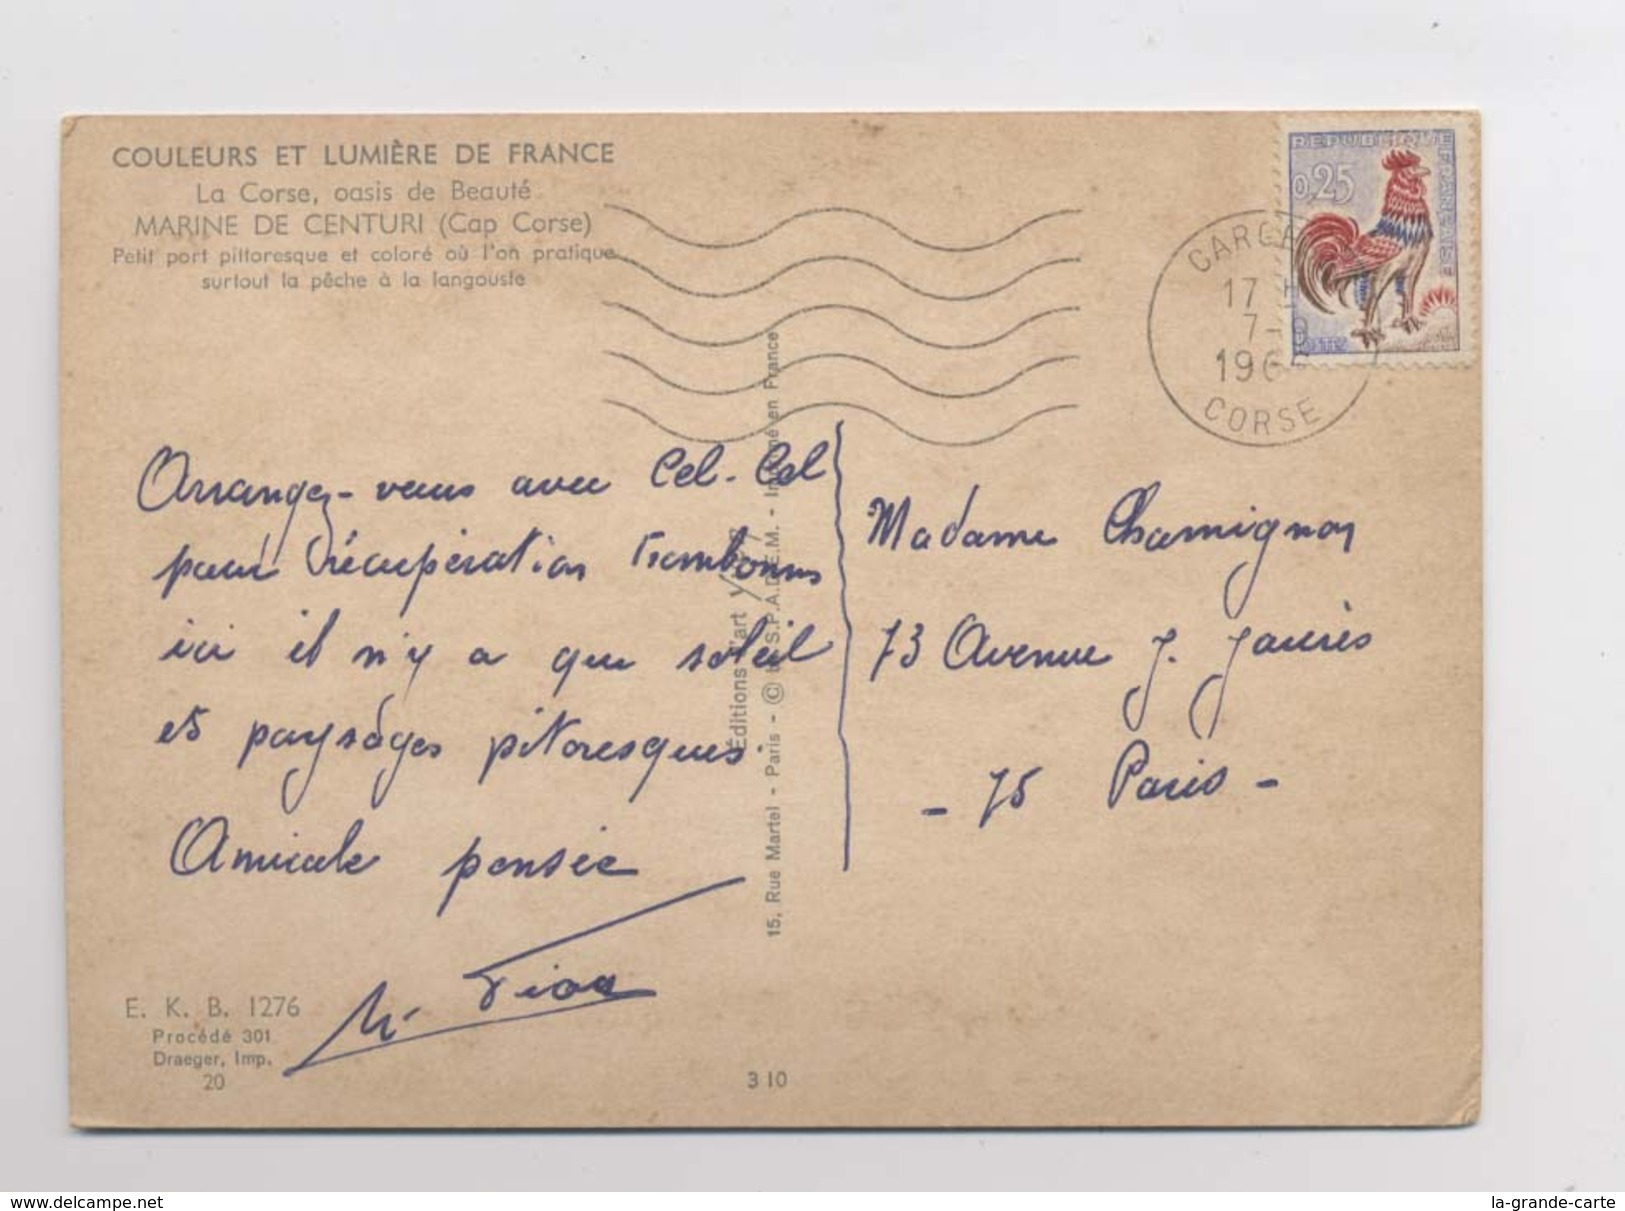 COULEURS ET LUMIÈRE DE FRANCE
La Corse, oasis de Beauté
MARINE DE CENTURI (Cap Corse)
Petit port pittoresque et coloré où l'on pratique
surtout la pêche à la langouste
REPUBLIQUE FRANÇAISE
0,25
POSTES
17 H
7-8
196
CORSE
Arrangez-vous avec Cel-Cel
pour récupération
ici il n'y a que soleil
et paysages pitoresques.
Amicale pensée
Madame Chamignon
73 Avenue J. Jaurès
- 75 Paris -
Editions d'art
15, Rue Martel - Paris - © by S.P.A.D.E.M. - Imprimé en France
E. K. B. 1276
Procédé 301
Draeger, Imp.
20
3 10
www.delcampe.net
la-grande-carte